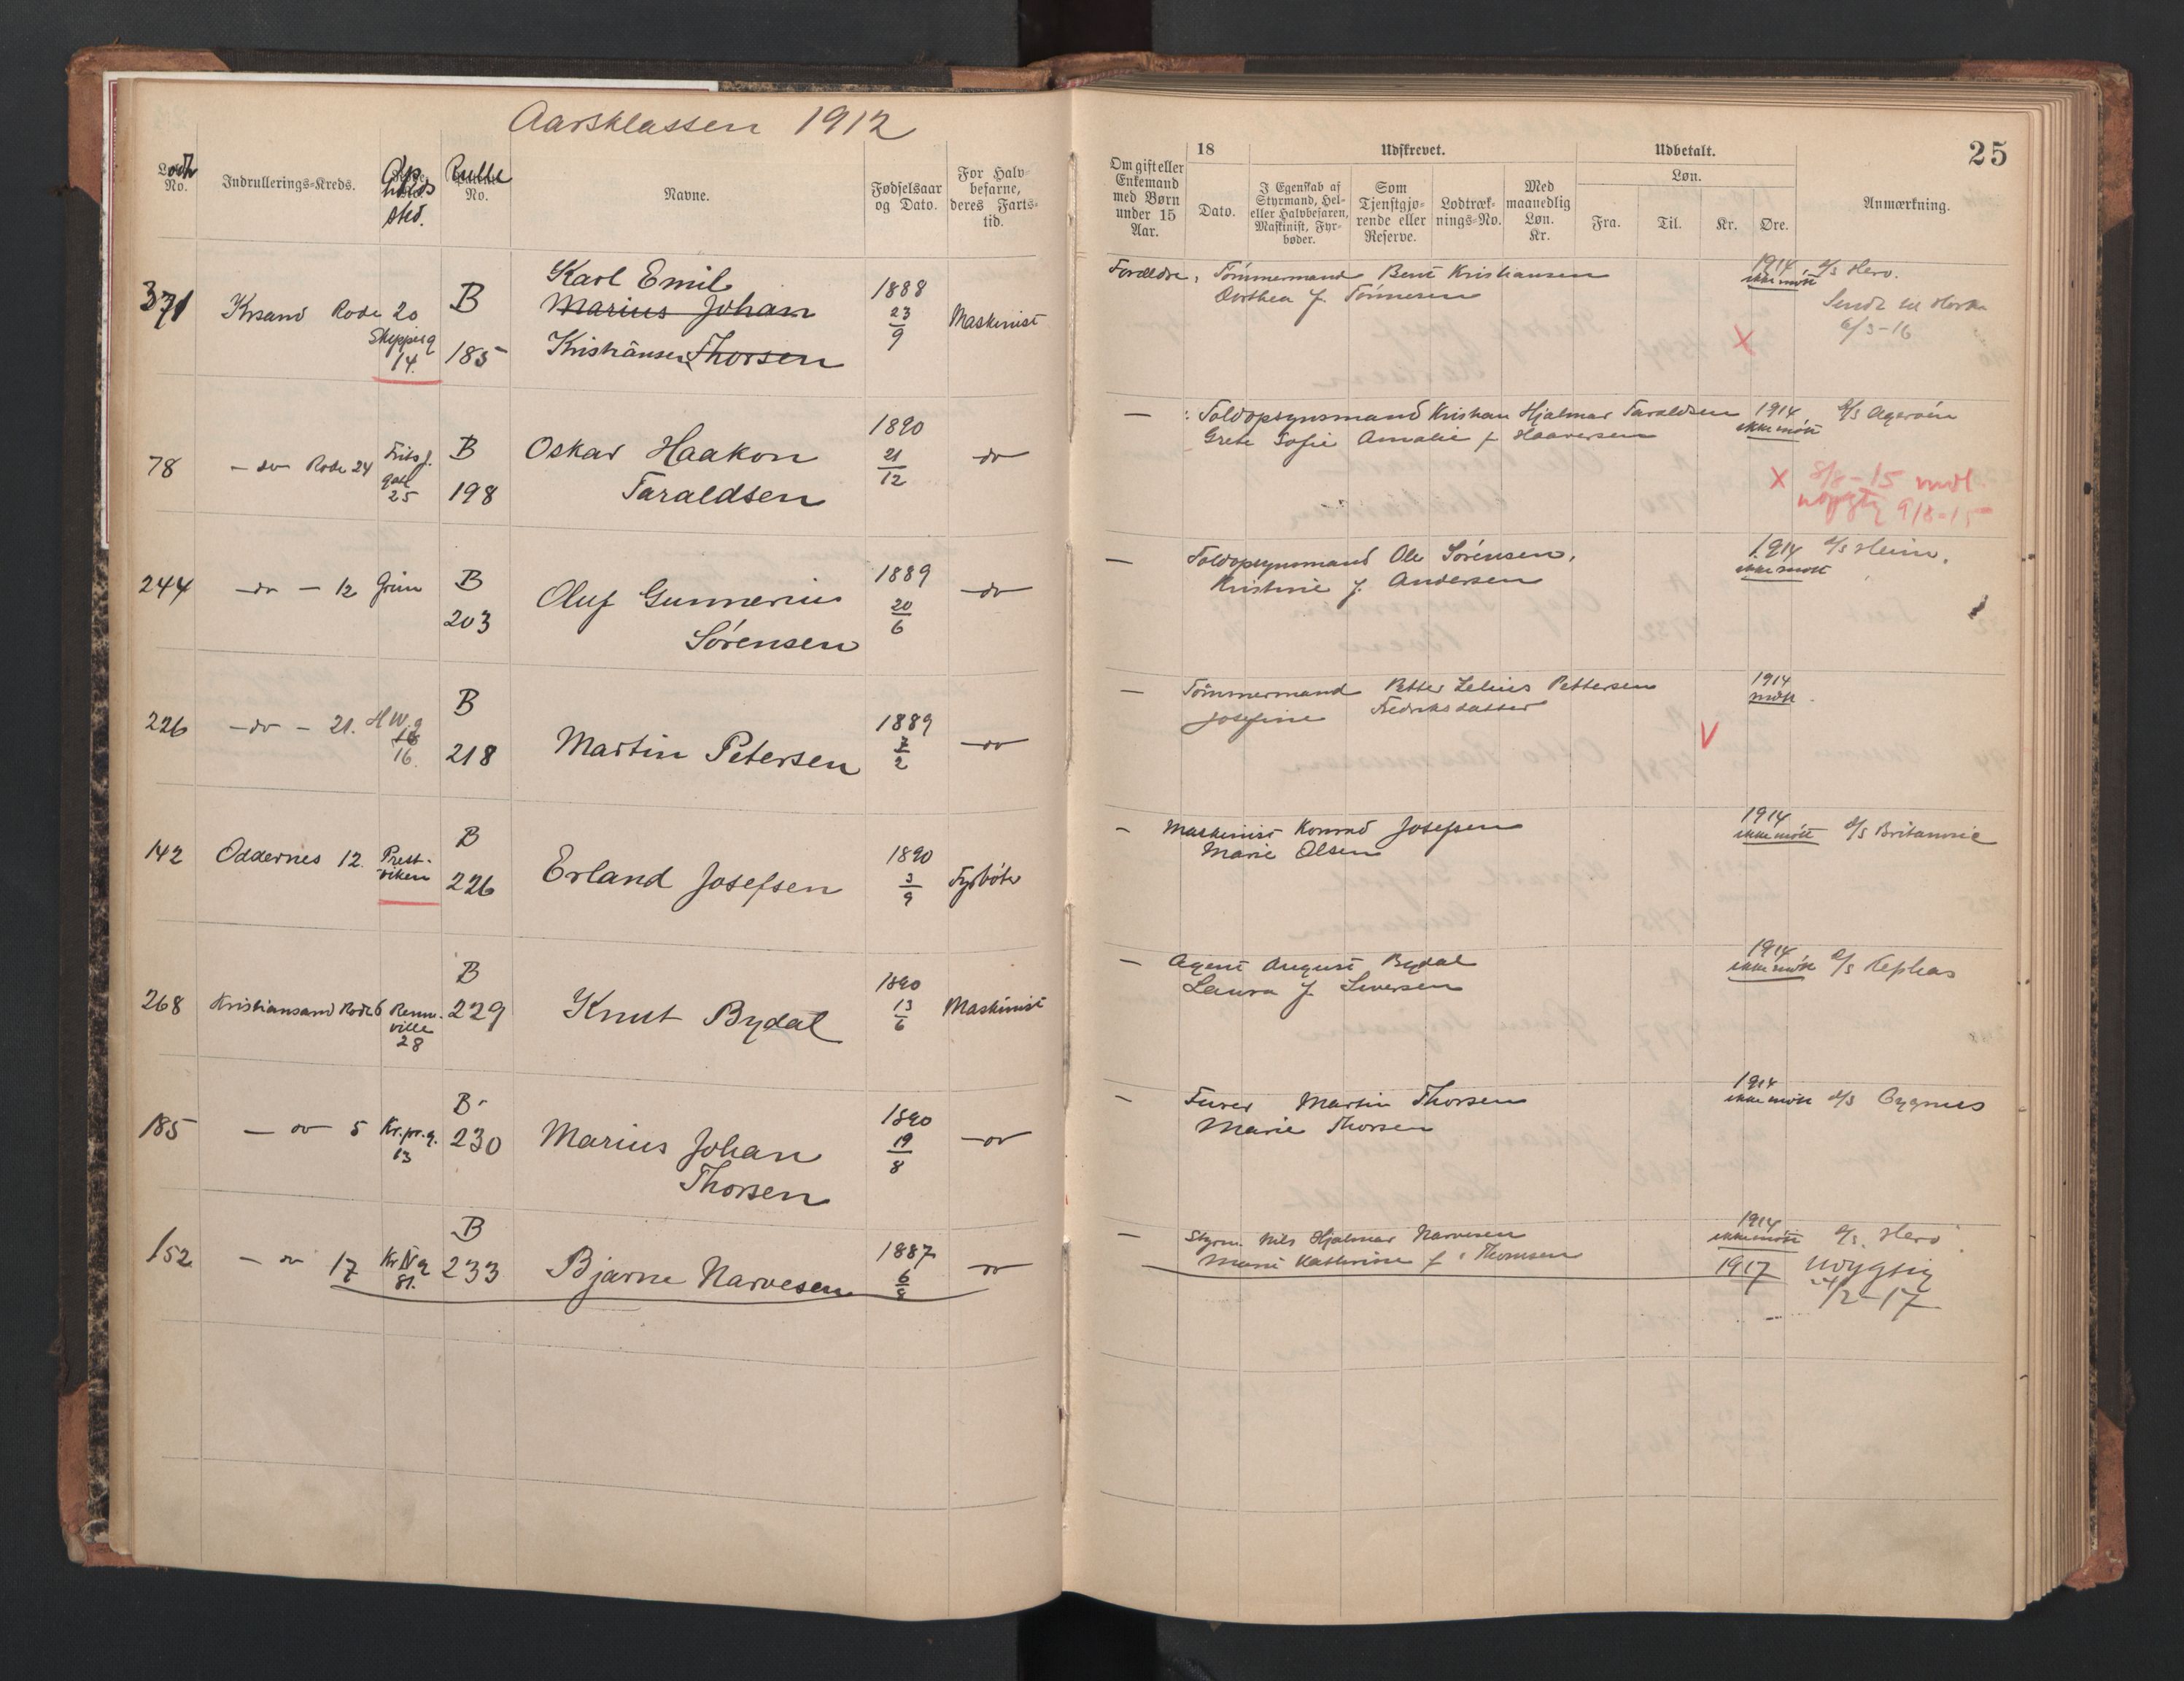 Aarsklassen 1912
25
Lodtr No.
Indrullerings-Kreds.
Opholdssted.
Rulle No.
Navne.
Fødselsaar og Dato.
For Halvbefarne, deres Farts-tid.
Om gift eller Enkemand med Børn under 15 Aar.
18
Dato.
Udskrevet.
I Egenskab af Styrmand, Hel- eller Halvbefaren, Maskinist, Fyrbøder.
Som Tjenstgjørende eller Reserve.
Lodtræknings-No.
Med maanedlig Løn. Kr.
Udbetalt.
Løn.
Fra.
Til.
Kr.
Øre.
Anmærkning.
371 Krsand Rode 20 Skipperg 14. B 185
Karl Emil
Marius Johan
Kristiansen Thorsen
1888 23/9 Maskinist
Forældre: Tömmermand Bent Kristiansen
Dorthea f. Tönnesen
1914 ikke mött d/s Hero.
Sendt til
6/3-16
X
78 - do - Rode 24 gate 25 B 198
Oskar Haakon
Taraldsen
1890 21/12 do
— : Toldopsynsmand Kristian Hjalmar Taraldsen
Grete Sofie Amalie f Haaversen
1914 ikke mött d/s Agerøen
X 8/8-15 mdl.
9/8-15
244 - do - 12 Grim B 203
Oluf Gunnerius
Sörensen
1889 20/6 do
— Toldopsynsmand Ole Sörensen,
Kristine f. Andersen
1914 ikke mött d/s Heim.
226 - do - 21. H W. g 16. B 218
Martin Petersen
1889 7/2 do
— Tömmermand Petter Pettersen
Josefine Fredriksdatter
1914 mött.
V
142 Oddernes 12. Prestviken B 226
Erland Josefsen
1890 3/9 Fyrböter
— Maskinist Konrad Josefsen
Marie Olsen
1914 ikke mött d/s Britannic
268 Kristiansand Rode 6 ville 28 B 229
Knut Bydal
1890 13/6 Maskinist
— Agent August Bydal
Laura f Siversen
1914 ikke mött d/s Kephas
185 - do 5 Kr.pr.g. 13 B 230
Marius Johan
Thorsen
1890 19/8 do
— Furer Martin Thorsen
Marie Thorsen
1914 ikke mött d/s Cygnus
152 - do 17 Kr IV g 81. B 233
Bjarne Narvesen
1887 6/8 do
— Styrm. Nils Hjalmar Narvesen
Marie Kathrine f. Thomsen
1914 ikke mött d/s. Hero
1917 uvygtig
24/2-17